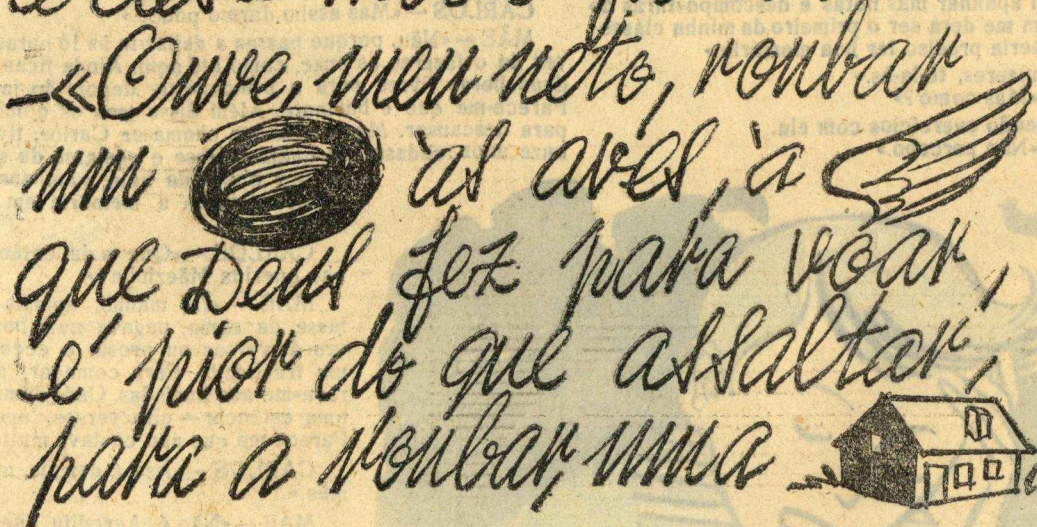 —«Ouve, meu neto, roubar
um às aves, à
que Deus fez para voar,
é pior do que assaltar,
para a roubar, uma